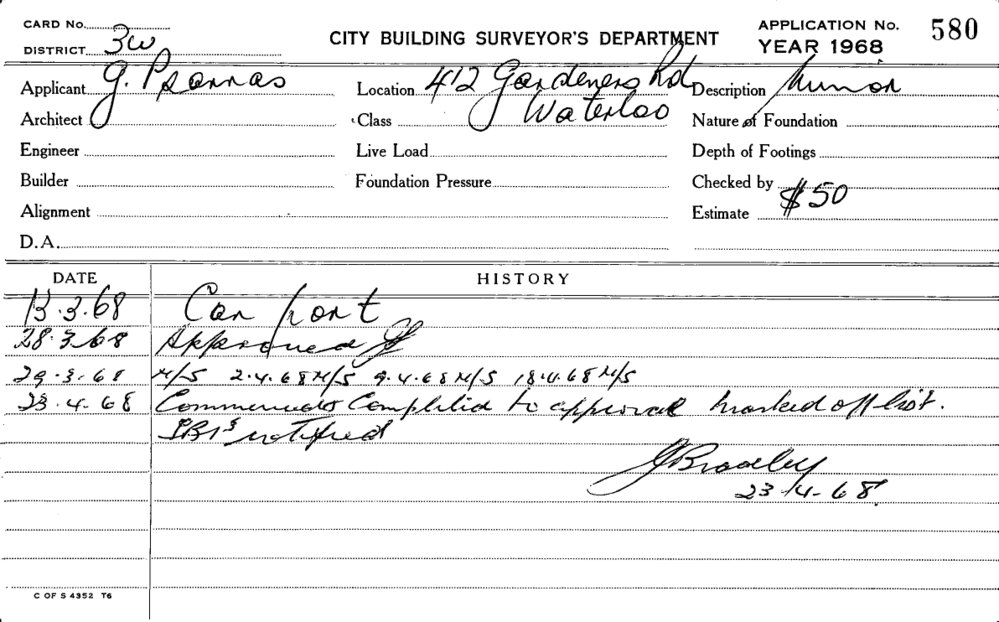 CARD No.
DISTRICT 3W
CITY BUILDING SURVEYOR'S DEPARTMENT
APPLICATION No. 580
YEAR 1968
Applicant G. Psarras
Location 412 Gardeners Rd
Waterloo
Description Minor
Architect
Class
Nature of Foundation
Engineer
Live Load
Depth of Footings
Builder
Foundation Pressure
Checked by
Alignment
Estimate $50
D.A.
DATE HISTORY
13.3.68 Car port
28.3.68 Approved
29.3.68 N/S 2.4.68 N/S 9.4.68 N/S 18.4.68 N/S
23.4.68 Commenced & Completed to approval marked off list.
notified
Bradley
23-4-68.
C OF S 4352 T6